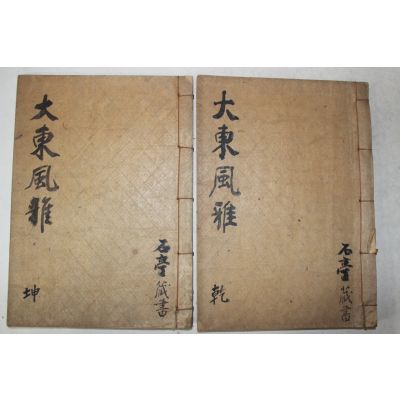 大東風雅
乾
石亭藏書
大東風雅
坤
石亭藏書